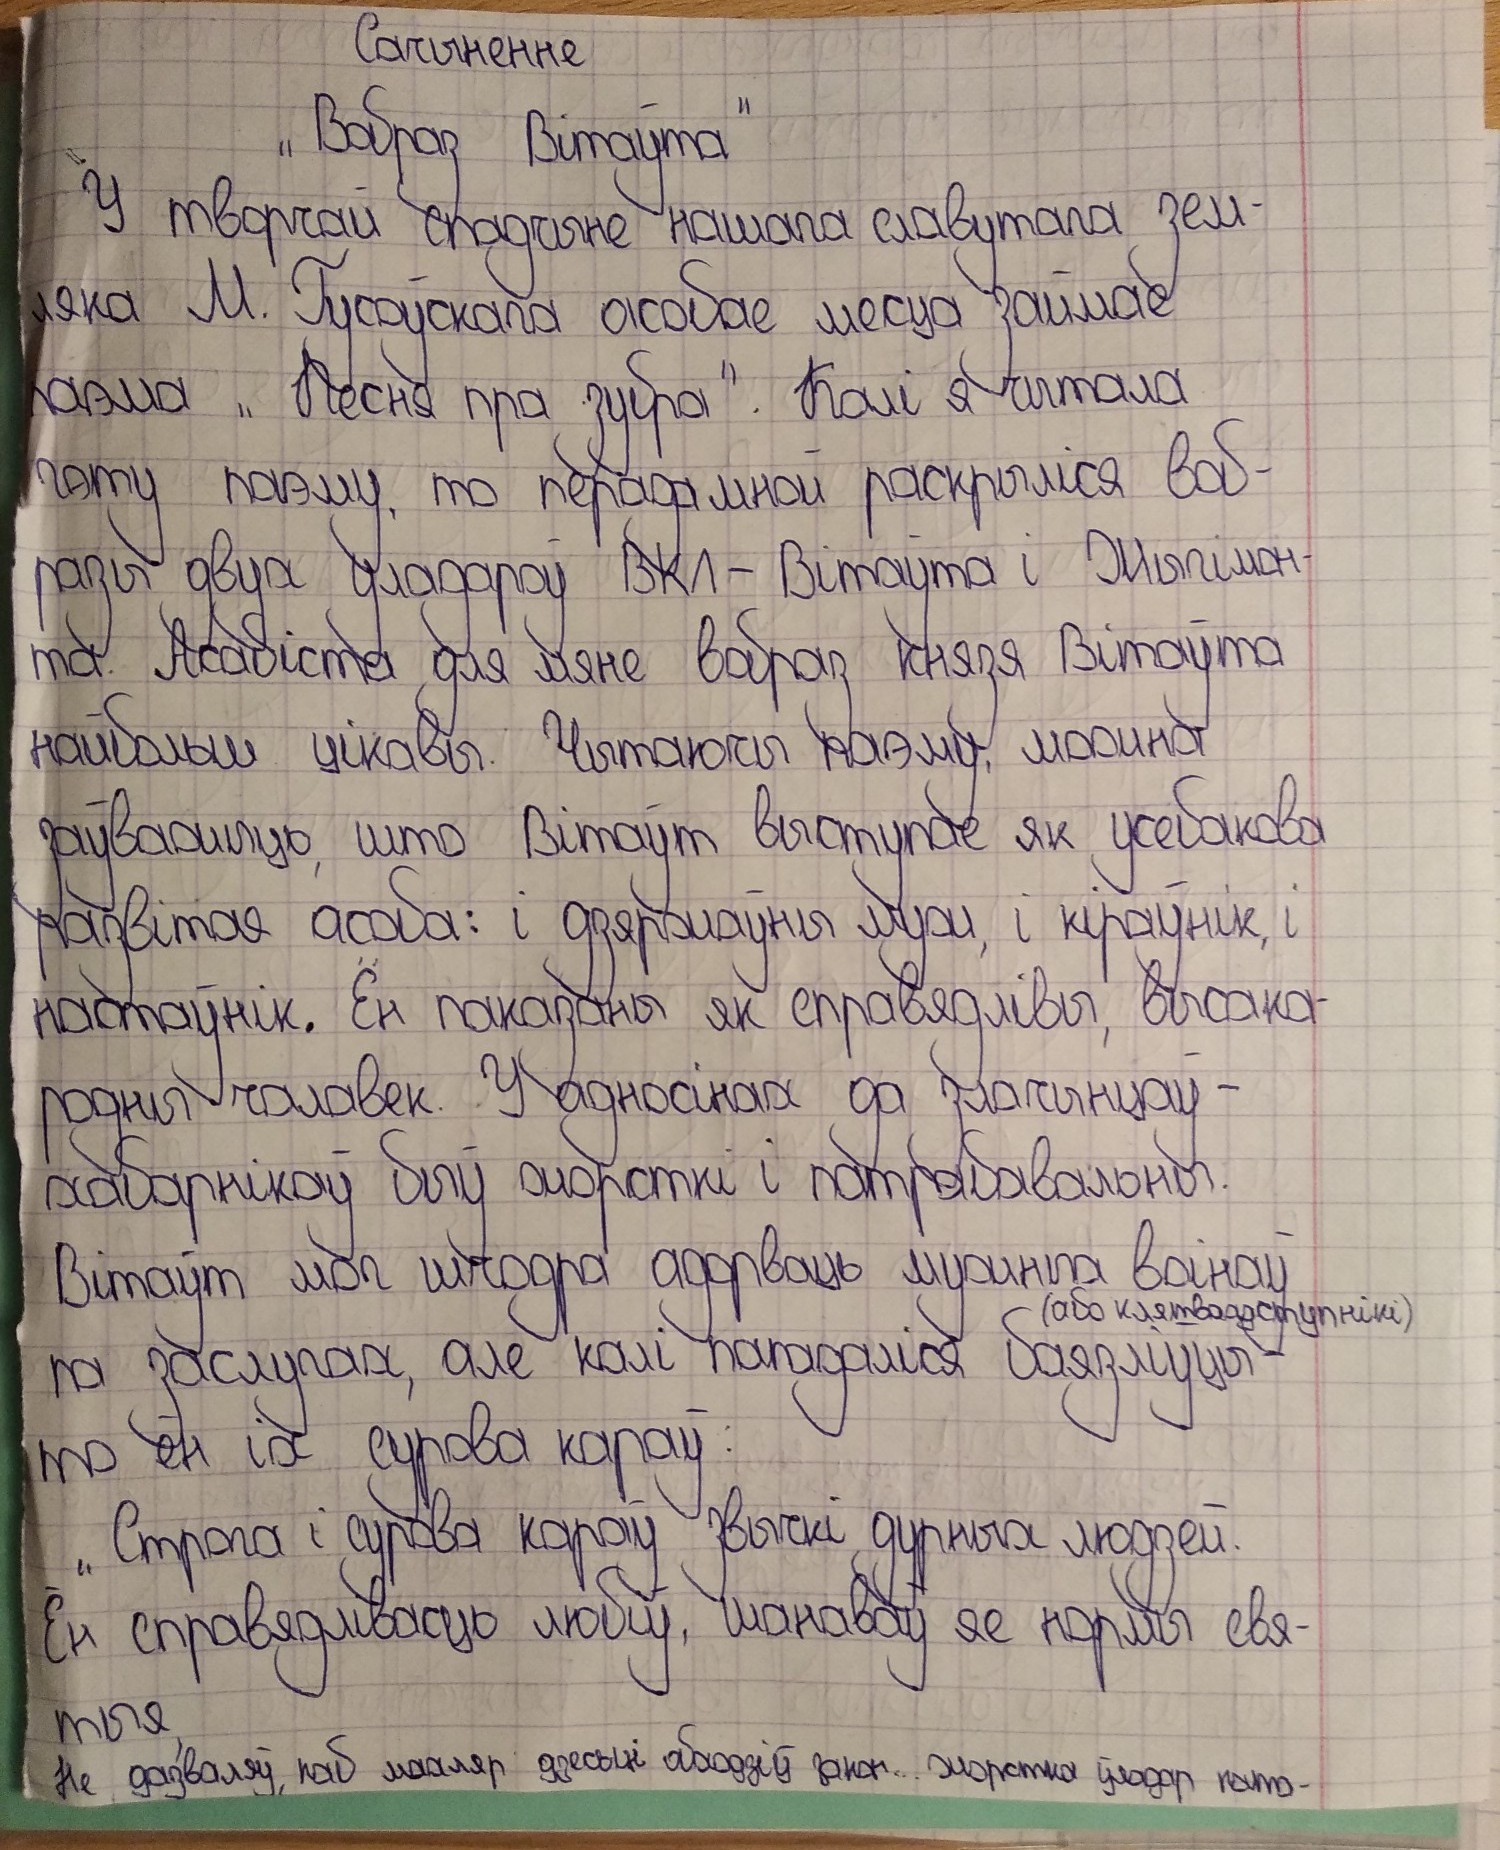 Сачыненне
„Вобраз Вітаўта"
У творчай спадчыне нашага славутага зем-
ляка М. Гусоўскага асобае месца займае
паэма „Песня пра зубра". Калі я чытала
гэту паэму, то перадамной раскрыліся воб-
разы двух уладароў ВКЛ – Вітаўта і Жыгімон-
та. Асабіста для мяне вобраз князя Вітаўта
найбольш цікавы. Чытаючы паэму, можна
заўважыць, што Вітаўт выступае як усебакова
развітая асоба: і дзяржаўны муж, і кіраўнік, і
настаўнік. Ён паказаны як справядлівы, высака-
родны чалавек. У адносінах да злачынцаў-
хабарнікаў быў жорсткі і патрабавальны.
Вітаўт мог шчодра адорваць мужнга воінаў
(або клятваадступнікі)
па заслугах, але калі пападаліся баязліўцы-
то ён іх сурова караў:
„Строга і сурова караў звычкі дурных людзей.
Ён справядлівасць любіў, шанаваў яе нормы свя-
тыя,
Не дазваляў, каб махляр дзесьці абходзіў закон... жорстка ўладар като-